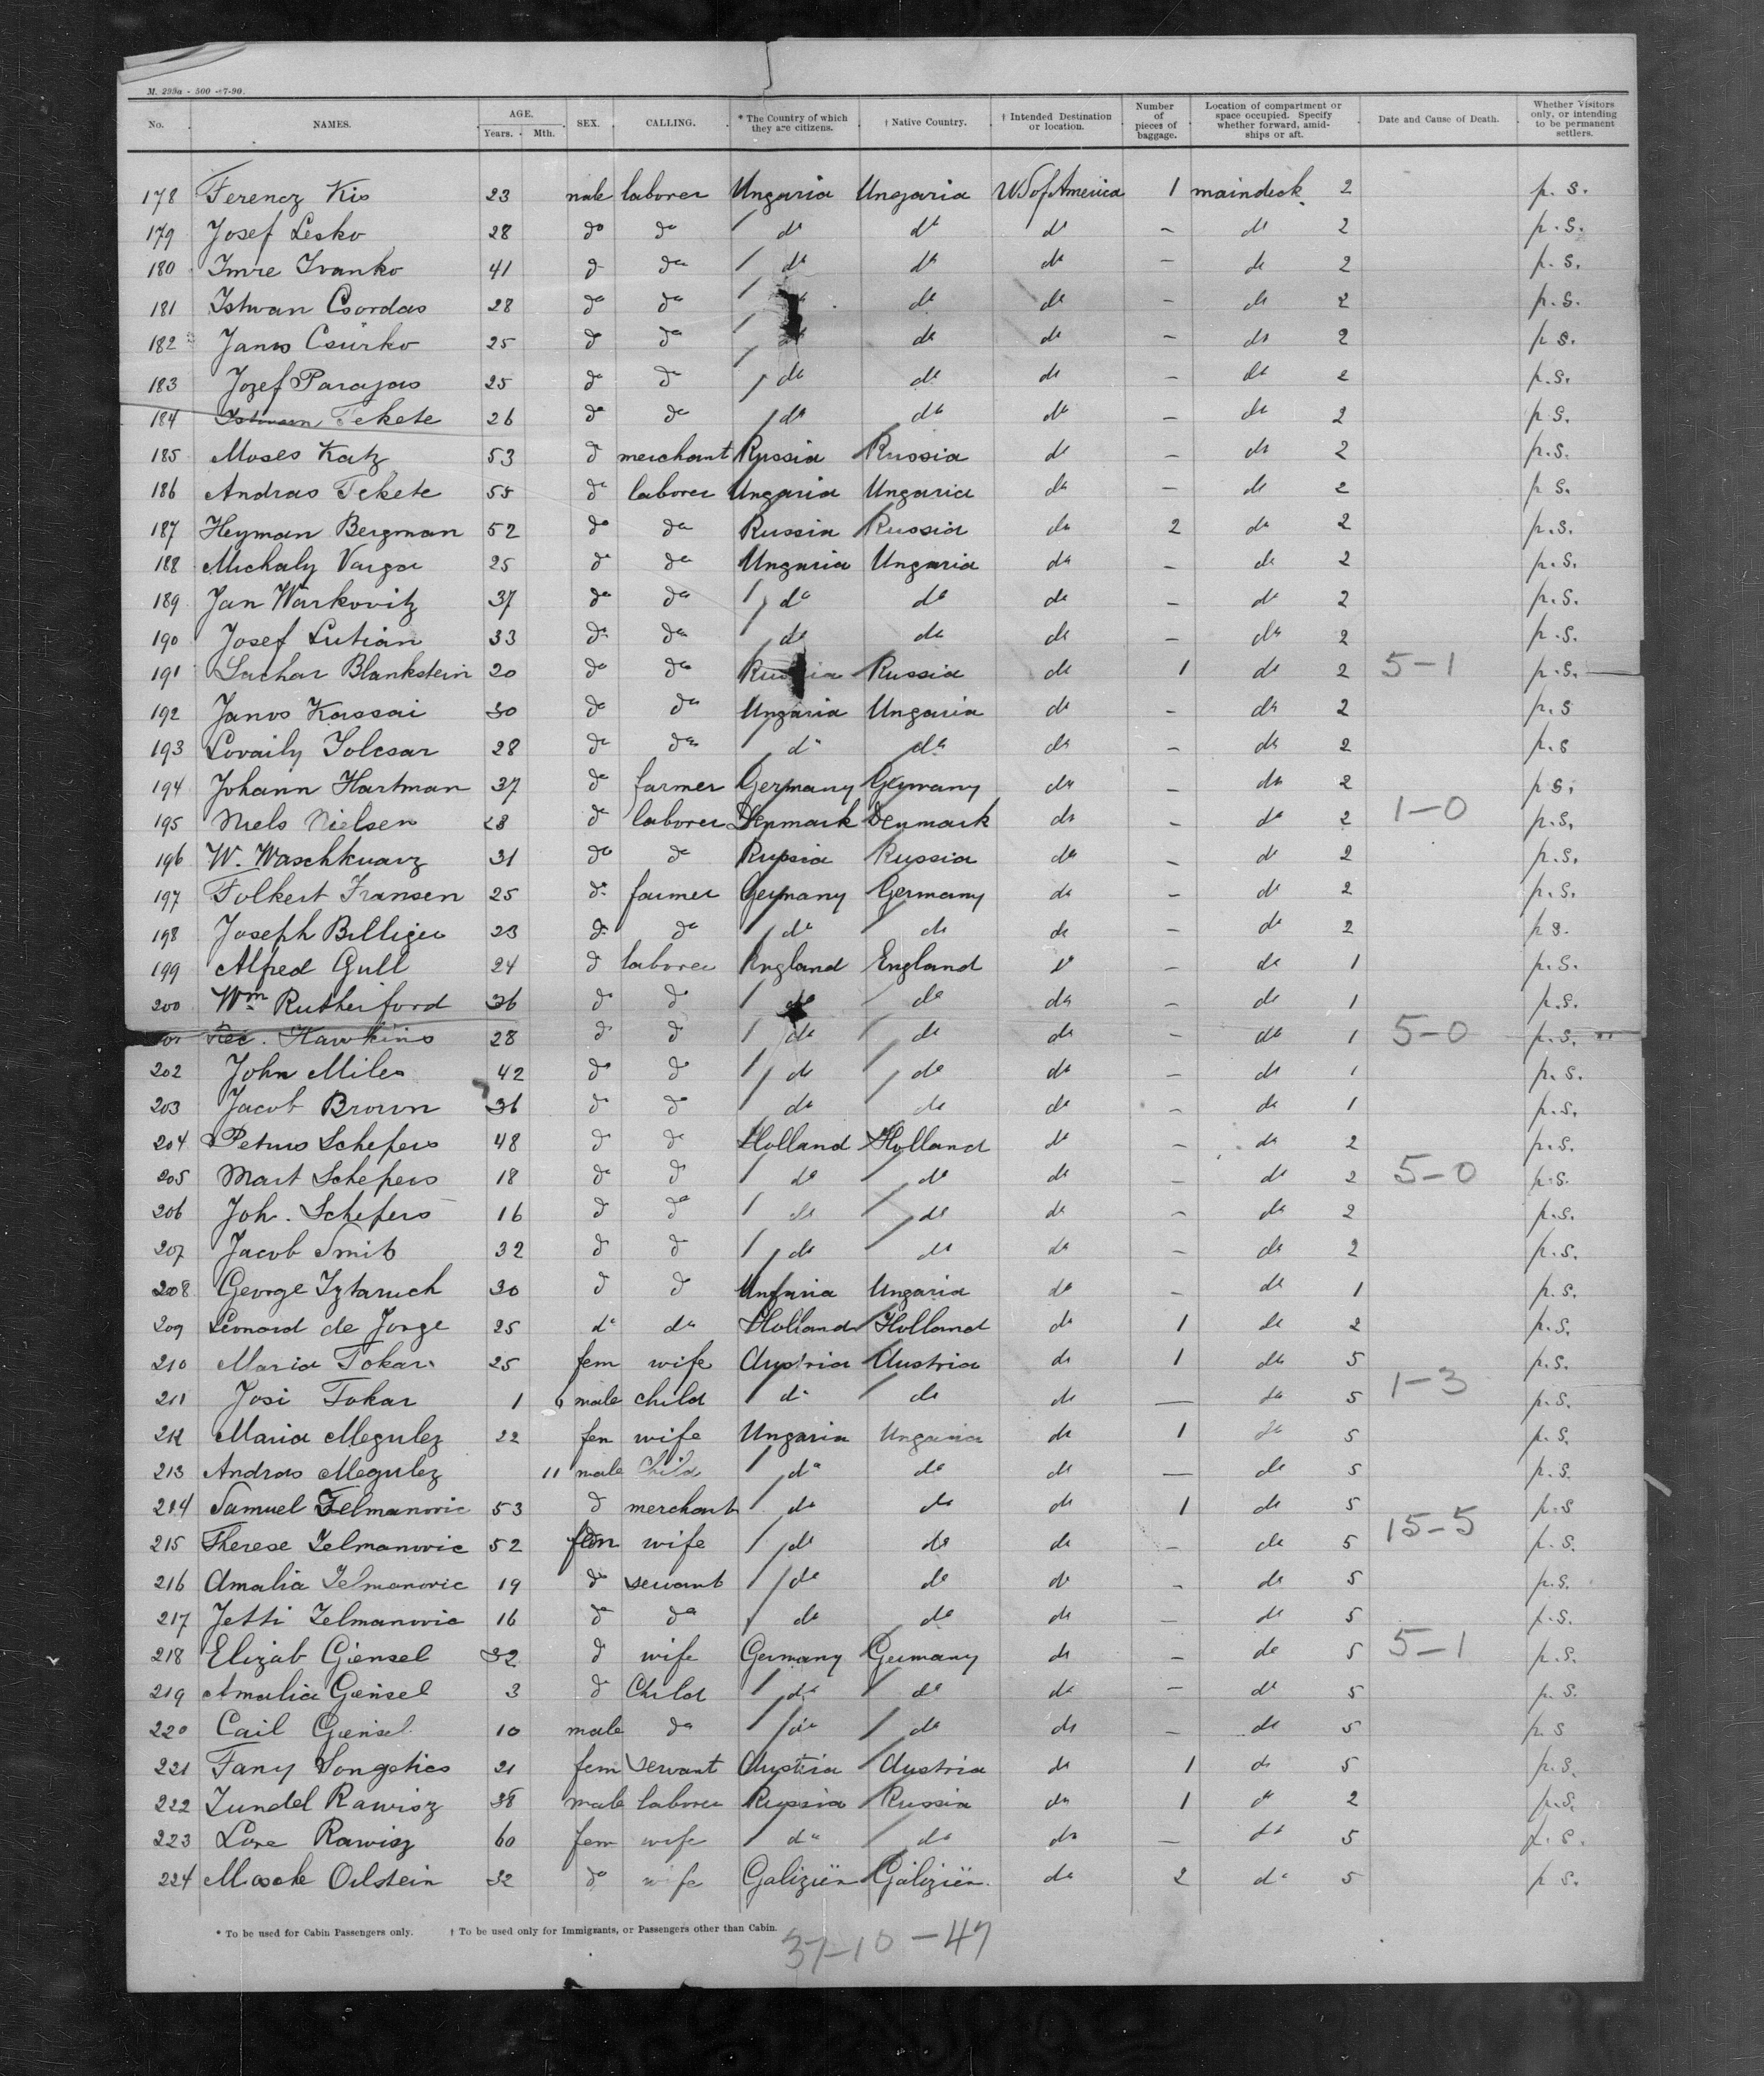 M. 293a - 500 - 7-90.
No. NAMES. AGE. Years. Mth. SEX. CALLING. * The Country of which they are citizens. † Native Country. † Intended Destination or location. Number of pieces of baggage. Location of compartment or space occupied. Specify whether forward, amidships or aft. Date and Cause of Death. Whether Visitors only, or intending to be permanent settlers.
178 Ferencz Kis 23 male laborer Ungaria Ungaria US of America 1 maindeck 2 p. s.
179 Josef Lesko 28 do do do do do - do 2 p. s.
180 Imre Ivanko 41 do do do do do - do 2 p. s.
181 Istwan Csordas 28 do do do do do - do 2 p. s.
182 Janos Csurko 25 do do do do do - do 2 p s.
183 Jozef Parajos 25 do do do do do - do 2 p.s.
184 Istwan Fekete 26 do do do do do - do 2 p s.
185 Moses Katz 53 do merchant Russia Russia do - do 2 p.s.
186 Andras Fekete 55 do laborer Ungaria Ungaria do - do 2 p s.
187 Heyman Bergman 52 do do Russia Russia do 2 do 2 p.s.
188 Michaly Varga 25 do do Ungaria Ungaria do - do 2 p.s.
189 Jan Warkovitz 37 do do do do do - do 2 p.s.
190 Josef Lutian 33 do do do do do - do 2 p.s.
191 Sachar Blankstein 20 do do Russia Russia do 1 do 2 5-1 p.s.
192 Janos Kassai 30 do do Ungaria Ungaria do - do 2 p.s
193 Lovaily Tolcsar 28 do do do do do - do 2 p.s
194 Johann Hartman 37 do farmer Germany Germany do - do 2 p s.
195 Niels Nielsen 28 do laborer Denmark Denmark do - do 2 1-0 p.s.
196 W. Waschkuarz 31 do do Russia Russia do - do 2 p.s.
197 Folkert Fransen 25 do farmer Germany Germany do - do 2 p.s.
198 Joseph Billiger 23 do do do do do - do 2 p s.
199 Alfred Gull 24 do laborer England England do - do 1 p.s.
200 Wm Rutherford 36 do do do do do - do 1 p.s.
201 Hawkins 28 do do do do do - do 1 5-0 p.s.
202 John Miles 42 do do do do do - do 1 p.s.
203 Jacob Brown 36 do do do do do - do 1 p.s.
204 Petrus Schefers 48 do do Holland Holland do - do 2 p.s.
205 Mart Schefers 18 do do do do do - do 2 5-0 p.s.
206 Joh. Schefers 16 do do do do do - do 2 p.s.
207 Jacob Smit 32 do do do do do - do 2 p.s.
208 George Iztaruch 30 do do Ungaria Ungaria do - do 1 p.s.
209 Leonard de Jonge 25 do do Holland Holland do 1 do 2 p.s.
210 Maria Tokar 25 fem wife Austria Austria do 1 do 5 p.s.
211 Josi Tokar 1 6 male child do do do - do 5 1-3 p.s.
212 Maria Megulez 22 fem wife Ungaria Ungaria do 1 do 5 p.s.
213 Andras Megulez 11 male Child do do do - do 5 p.s.
214 Samuel Zelmanovic 53 do merchant do do do 1 do 5 p.s
215 Therese Zelmanovic 52 fem wife do do do - do 5 15-5 p.s.
216 Amalia Zelmanovic 19 do servant do do do - do 5 p.s.
217 Jetti Zelmanovic 16 do do do do do - do 5 p.s.
218 Elizab Giensel 32 do wife Germany Germany do - do 5 5-1 p.s.
219 Amalia Giensel 3 do Child do do do - do 5 p.s.
220 Carl Giensel 10 male do do do do - do 5 p.s
221 Fany Songetics 21 fem servant Austria Austria do 1 do 5 p.s.
222 Zundel Rawisz 38 male laborer Russia Russia do 1 do 2 p.s.
223 Lore Rawisz 60 fem wife do do do - do 5 p.s.
224 Mosche Orlstein 32 do wife Galiziën Galiziën do 2 do 5 p s.
* To be used for Cabin Passengers only. † To be used only for Immigrants, or Passengers other than Cabin.
37-10-47